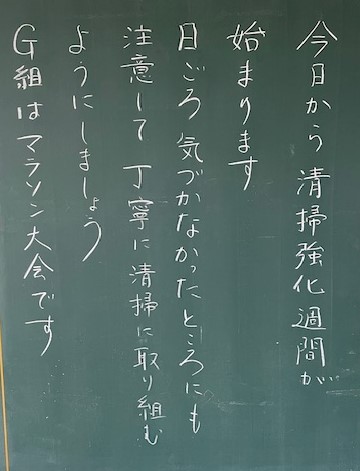 今日から 清掃強化週間が
始まります
日ごろ 気づかなかったところにも
注意して 丁寧に清掃に取り組む
ようにしましょう
G組はマラソン大会です